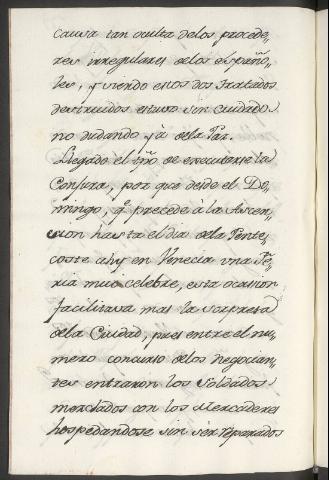 causa tan oculta delos procede,
res irregulares delos españo,
les, y siendo estos dos tratados
destruidos estuvo sin cuidado
no dudando yà dela Paz.
Llegado èl tpõ de executarse la
Conjura, por que desde el Do,
mingo, q̃ precede à la Ascen,
sion hasta el dia dela Pente,
coste ahy en Venecia vna Fe,
ria mui celebre, esta ocasion
facilitava mas la sorpresa
dela Ciudad, pues entre el nu,
mero concurso delos negocian,
tes entraron los Soldados
mezclados con los Mercaderes
hospedandose sin sèr reparados